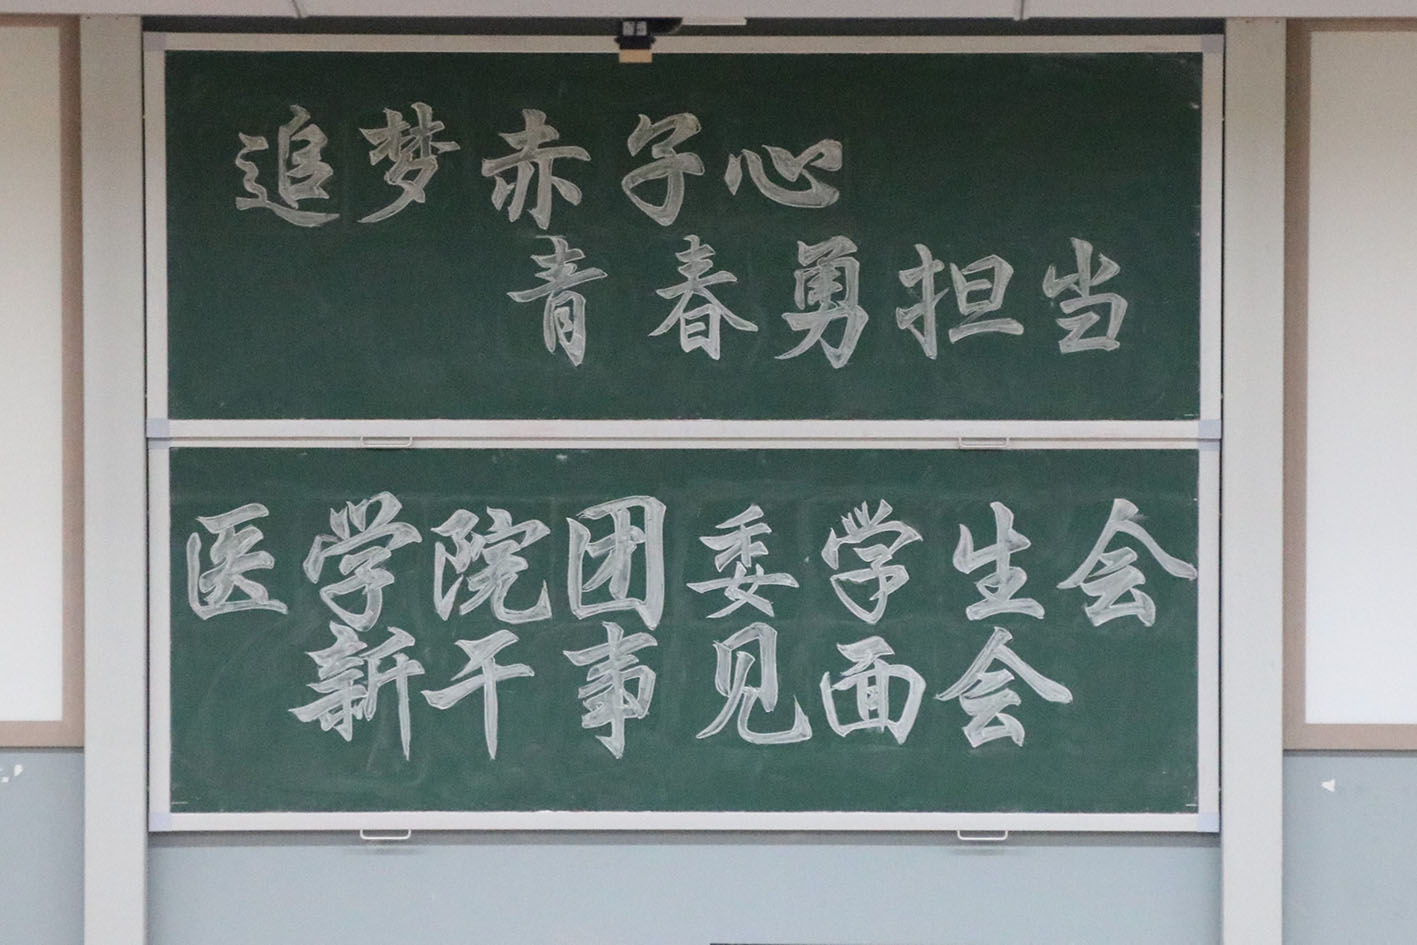 追梦赤子心
青春勇担当
医学院团委学生会
新干事见面会